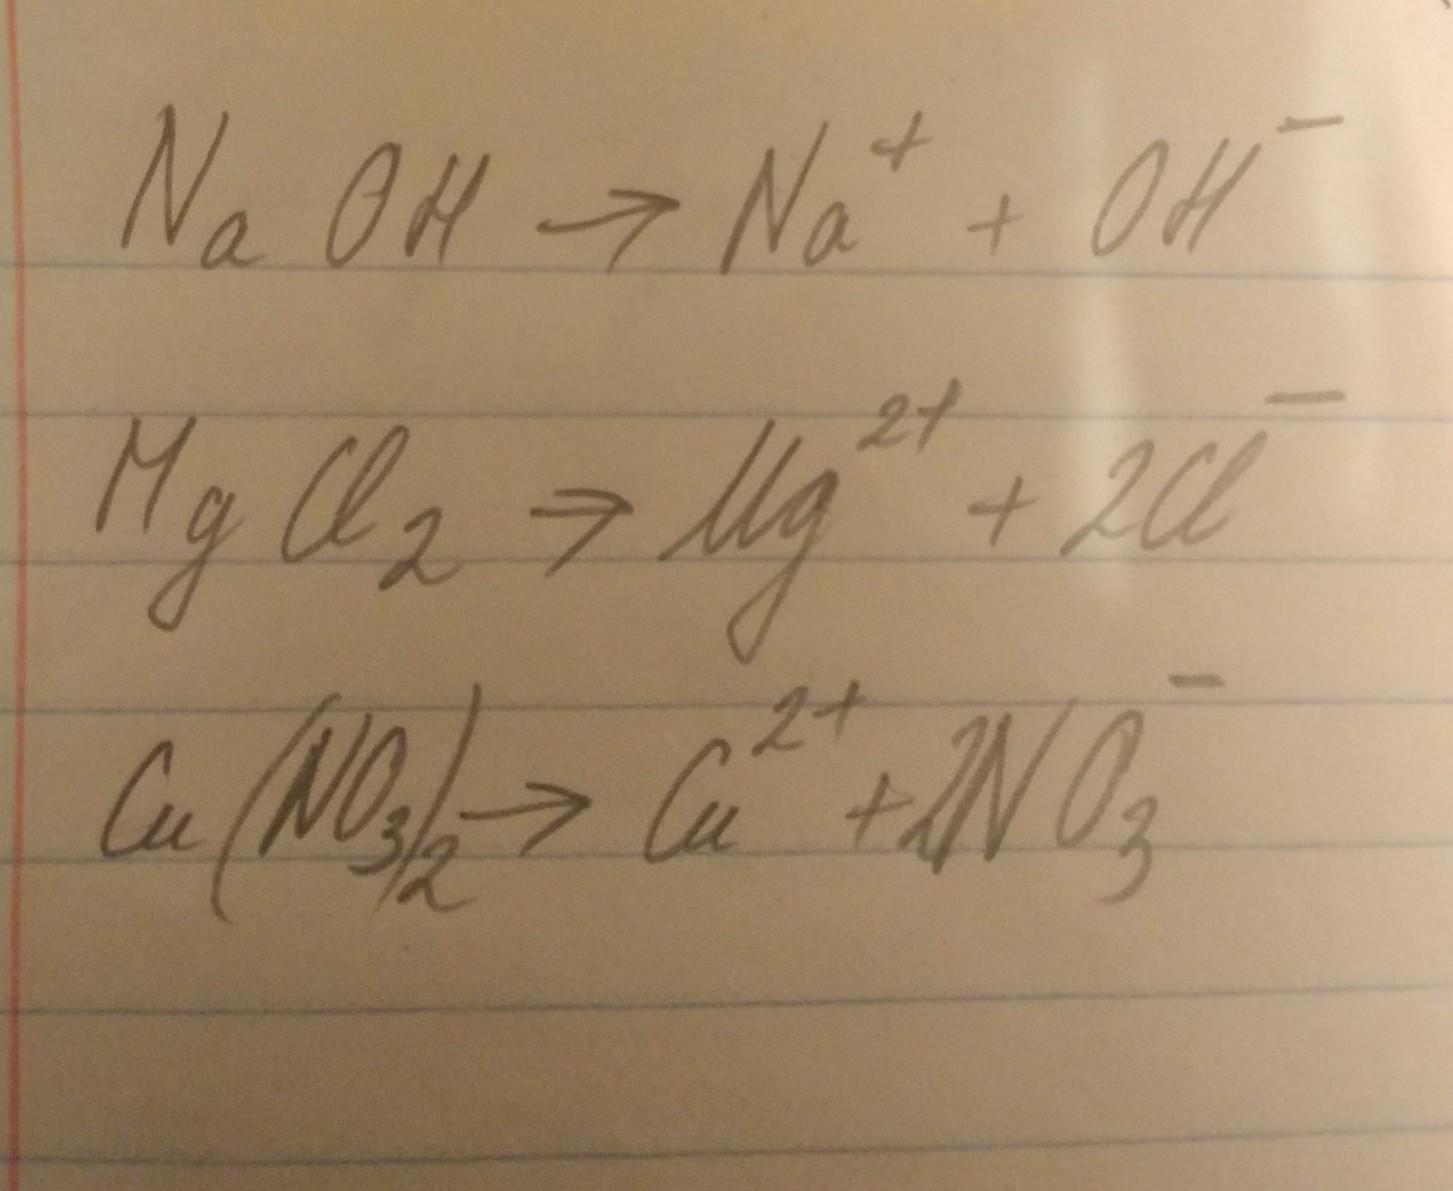 NaOH → Na⁺ + OH⁻
MgCl₂ → Mg²⁺ + 2Cl⁻
Cu(NO₃)₂ → Cu²⁺ + 2NO₃⁻